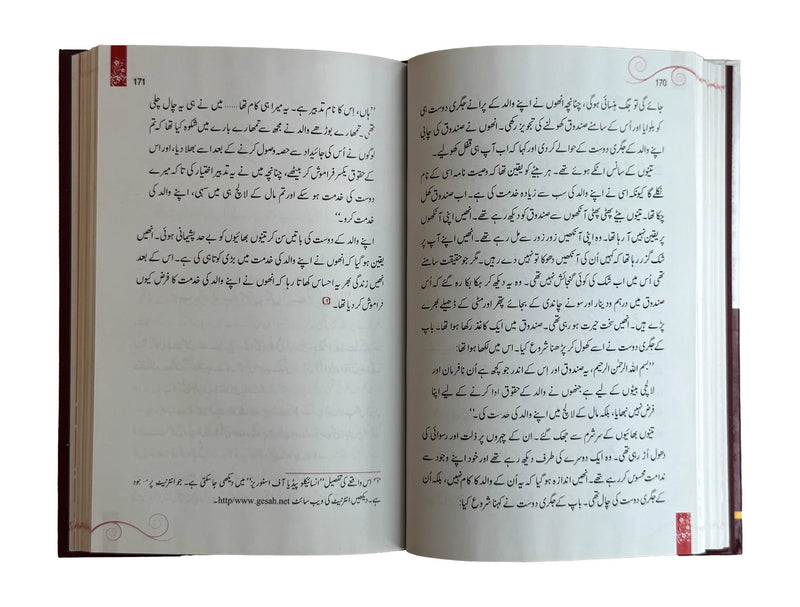 170
جائے گی تو جگ ہنسائی ہوگی، چنانچہ انھوں نے اپنے والد کے پرانے جگری دوست ہی
کو بلوایا اور اُس کے سامنے صندوق کھولنے کی تجویز رکھی۔ انھوں نے صندوق کی چابی
اپنے والد کے جگری دوست کے حوالے کر دی اور کہا کہ اب آپ ہی قفل کھولیے۔
تینوں کے سانس اٹکے ہوئے تھے۔ ہر بیٹے کو یقین تھا کہ وصیت نامہ اسی کے نام
نکلے گا کیونکہ اسی نے اپنے والد کی سب سے زیادہ خدمت کی ہے۔ اب صندوق کھل
چکا تھا۔ تینوں بیٹے پھٹی پھٹی آنکھوں سے صندوق کو دیکھ رہے تھے۔ انھیں اپنی آنکھوں
پر یقین نہیں آ رہا تھا۔ وہ اپنی آنکھیں زور زور سے مل رہے تھے۔ انھیں اپنے آپ پر
شک گزر رہا تھا کہ کہیں اُن کی آنکھیں دھوکا تو نہیں دے رہیں۔ مگر جو حقیقت سامنے
تھی اُس میں اب شک کی کوئی گنجائش نہیں تھی۔ وہ یہ دیکھ کر ہکا بکا رہ گئے کہ اُس
صندوق میں درہم و دینار اور سونے چاندی کے بجائے پتھر اور مٹی کے ڈھیلے بھرے
پڑے ہیں۔ انھیں سخت حیرت ہو رہی تھی۔ صندوق میں ایک کاغذ رکھا ہوا تھا۔ باپ
کے جگری دوست نے اسے کھول کر پڑھنا شروع کیا۔ اس میں لکھا ہوا تھا:
’’بسم اللہ الرحمٰن الرحیم، یہ صندوق اور اس کے اندر جو کچھ ہے اُن نافرمان اور
لالچی بیٹوں کے لیے ہے جنھوں نے والد کے حقوق ادا کرنے کے لیے اپنا
فرض نہیں نبھایا، بلکہ مال کے لالچ میں اپنے والد کی خدمت کی۔‘‘
تینوں بھائیوں کے سر شرم سے جھک گئے۔ ان کے چہروں پر ذلت اور رسوائی کی
دھول اڑ رہی تھی۔ وہ ایک دوسرے کی طرف دیکھ رہے تھے اور خود اپنے وجود سے
ندامت محسوس کر رہے تھے۔ انھیں اندازہ ہو گیا کہ یہ اُن کے والد کا کام نہیں، بلکہ اُن
کے جگری دوست کی چال تھی۔ باپ کے جگری دوست نے کہنا شروع کیا:
171
’’ہاں، اِس کا نام تدبیر ہے۔ یہ میرا ہی کام تھا...... میں نے ہی یہ چال چلی
تھی۔ تمھارے بوڑھے والد نے مجھ سے تمھارے بارے میں شکوہ کیا تھا کہ تم
لوگوں نے اُس کی جائیداد سے حصہ وصول کرنے کے بعد اسے بھلا دیا، اور اس
کے حقوق یکسر فراموش کر بیٹھے، چنانچہ میں نے یہ تدبیر اختیار کی تاکہ میرے
دوست کی خدمت ہو سکے اور تم مال کے لالچ ہی میں سہی، اپنے والد کی
خدمت کرو۔‘‘
اپنے والد کے دوست کی باتیں سن کر تینوں بھائیوں کو بے حد پشیمانی ہوئی۔ انھیں
یقین ہو گیا کہ انھوں نے اپنے والد کی خدمت میں بڑی کوتاہی کی ہے۔ اس کے بعد
انھیں زندگی بھر یہ احساس کھاتا رہا کہ انھوں نے اپنے والد کی خدمت کا فرض کیوں
فراموش کر دیا تھا۔
اس واقعے کی تفصیل ’’انسائیکلو پیڈیا آف اسٹوریز‘‘ میں دیکھی جاسکتی ہے۔ جو انٹرنیٹ پر موجود
ہے۔ دیکھیں انٹرنیٹ کی ویب سائٹ http/www.gesah.net۔